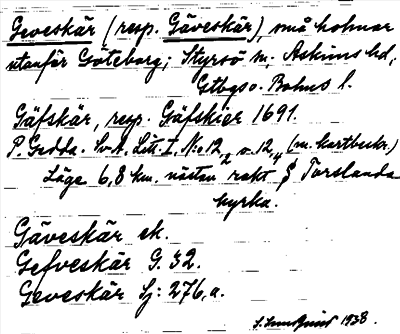 Geveskär (resp. Gäveskär), små holmar
utanför Göteborg; Styrsö sn; Askims hd,
Gtbgs o. Bohus l.
Gäfskär, resp. Gäfskier 1691.
P. Gedda. Sv.A. Litt. I. No 12,2 o. 12,4 (m. kartbeskr.)
Läge 6,8 km. nästan rakt S Torslanda
kyrka.
Gäveskär ek.
Gefveskär G. 32.
Geveskär Sj: 276, a.
1938.